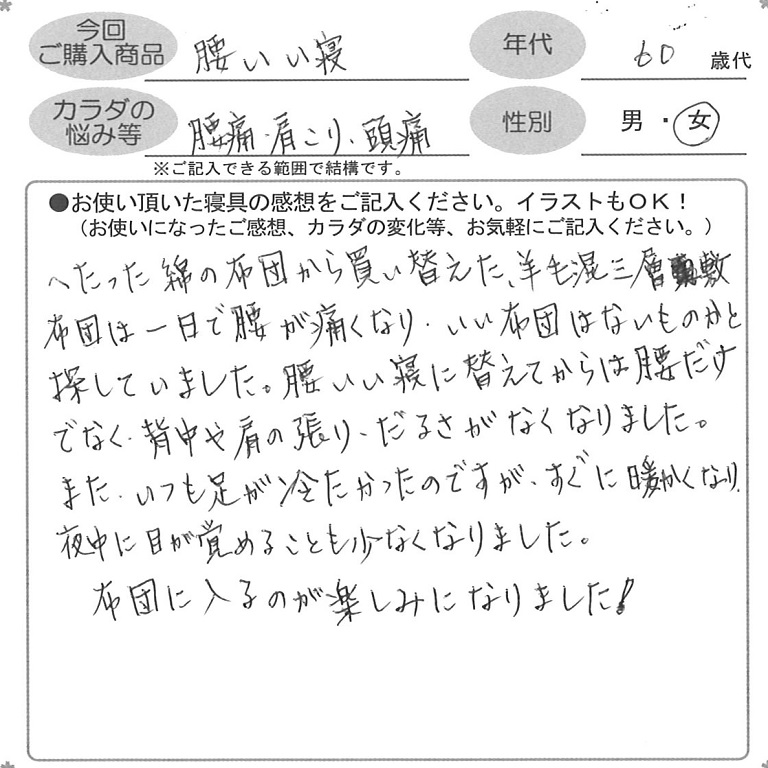 今回
ご購入商品
腰いい寝
年代
60 歳代
カラダの
悩み等
腰痛・肩こり・頭痛
性別
男・女
※ご記入できる範囲で結構です。
●お使い頂いた寝具の感想をご記入ください。イラストもOK!
(お使いになったご感想、カラダの変化等、お気軽にご記入ください。)
へたった綿の布団から買い替えた、羊毛混三層敷
布団は一日で腰が痛くなり、いい布団はないものかと
探していました。腰いい寝に替えてからは腰だけ
でなく、背中や肩の張り、だるさがなくなりました。
また、いつも足が冷たかったのですが、すぐに暖かくなり、
夜中に目が覚めることも少なくなりました。
布団に入るのが楽しみになりました!